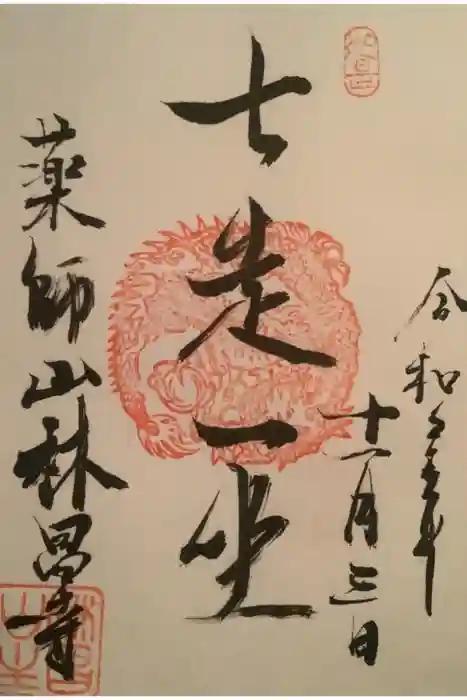 令和五年
十一月三日
七走一坐
薬師山林昌寺